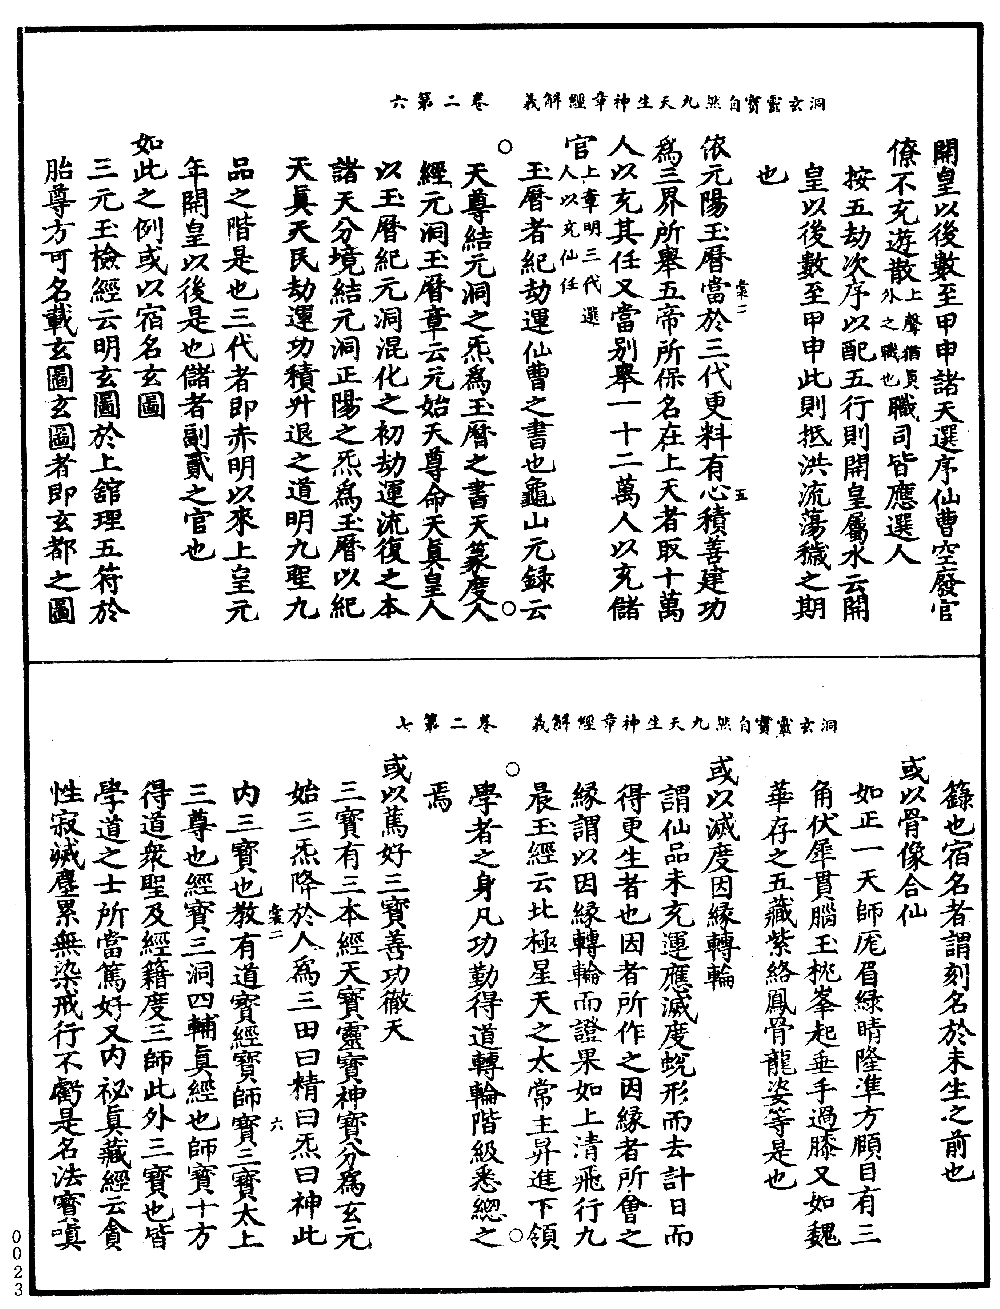 洞玄靈寶自然九天生神章經解義　卷二第六
開皇以後數至甲申諸天選序仙曹空廢官
僚不充遊散上聲猶員外之職也職司皆應選人
按五劫次序以配五行則開皇屬水云開
皇以後數至甲申此則抵洪流蕩穢之期
也
依元陽玉曆當於三代更料有心積善建功
棠二　五
爲三界所舉五帝所保名在上天者取十萬
人以充其任又當別舉一十二萬人以充儲
官上章明三代選人以充仙任
玉曆者紀劫運仙曹之書也龜山元録云
天尊結元洞之炁爲玉曆之書天篆度人
經元洞玉曆章云元始天尊命天真皇人
以玉曆紀元洞混化之初劫運流復之本
諸天分境結元洞正陽之炁爲玉曆以紀
天真天民劫運功積升退之道明九聖九
品之階是也三代者即赤明以來上皇元
年開皇以後是也儲者副貳之官也
如此之例或以宿名玄圖
三元玉檢經云明玄圖於上舘理五符於
胎尊方可名載玄圖玄圖者即玄都之圖
洞玄靈寶自然九天生神章經解義　卷二第七
籙也宿名者謂刻名於未生之前也
或以骨像合仙
如正一天師厖眉緑睛隆準方頤目有三
角伏犀貫腦玉枕峯起垂手過膝又如魏
華存之五藏紫絡鳳骨龍姿等是也
或以滅度因緣轉輪
謂仙品未充運應滅度蛻形而去計日而
得更生者也因者所作之因緣者所會之
緣謂以因緣轉輪而證果如上清飛行九
晨玉經云北極星天之太常主昇進下領
學者之身凡功勤得道轉輪階級悉緫之
焉
或以篤好三寶善功徹天
三寶有三本經天寶靈寶神寶分爲玄元
始三炁降於人爲三田曰精曰炁曰神此
棠二　六
内三寶也教有道寶經寶師寶三寶太上
三尊也經寶三洞四輔真經也師寶十方
得道衆聖及經籍度三師此外三寶也皆
學道之士所當篤好又内祕真藏經云貪
性寂滅塵累無染戒行不虧是名法寶嗔
0023